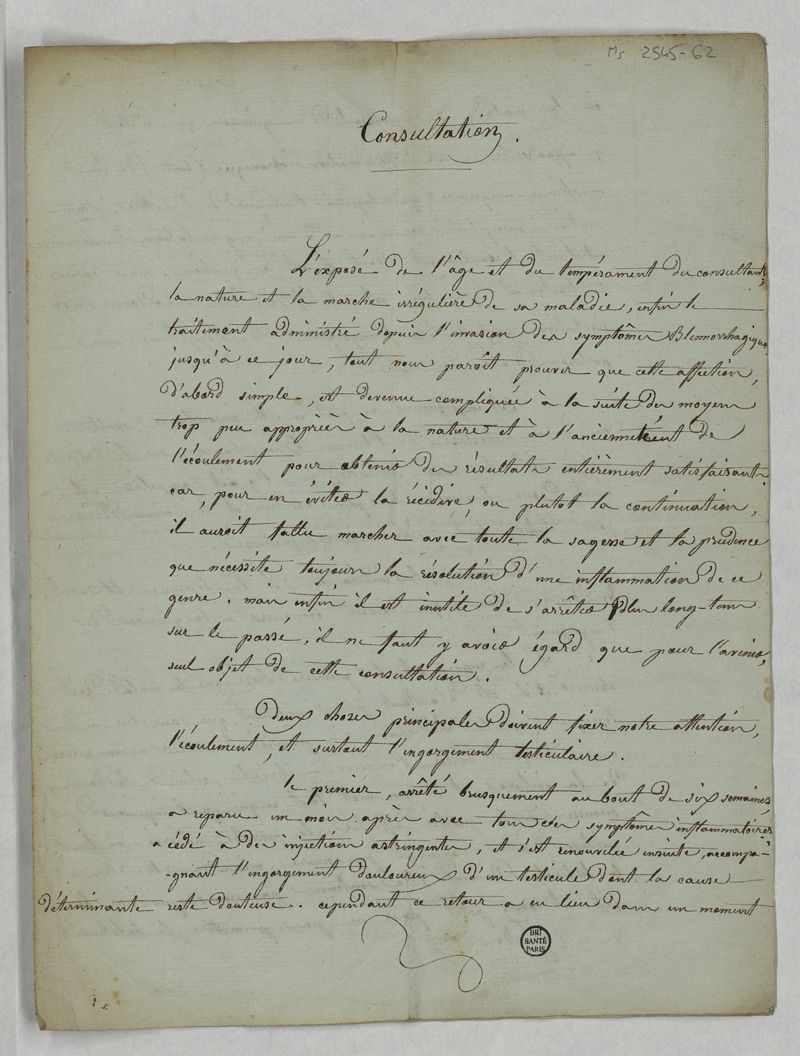 Ms 2545-62
Consultation.
L'exposé de l'âge et du tempérament du consultant,
la nature et la marche irrégulière de sa maladie, enfin le
traitement administré depuis l'invasion des symptômes Blennorrhagiques
jusqu'à ce jour, tout nous paroît prouver que cette affection,
d'abord simple, est devenue compliquée à la suite de moyens
trop peu appropriés à la nature et à l'ancienneté de
l'écoulement pour obtenir des résultats entièrement satisfaisants
car, pour en éviter la récidive, ou plutot la continuation,
il auroit fallu marcher avec toute la sagesse et la prudence
que nécessite toujours la résolution d'une inflammation de ce
genre. mais enfin il est inutile de s'arrêter plus long-tems
sur le passé, il ne faut y avoir égard que pour l'avenir,
seul objet de cette consultation.
Deux choses principales doivent fixer notre attention,
l'écoulement, et surtout l'engorgement testiculaire.
le premier, arrêté brusquement au bout de six semaines,
a reparu un mois après avec tous ces symptômes inflammatoires
a cédé à des injections astringentes, et s'est renouvelée ensuite, accompa-
-gnant l'engorgement douloureux d'un testicule dont la cause
déterminante reste douteuse. cependant ce retour a eu lieu dans un moment
BIU
SANTÉ
PARIS